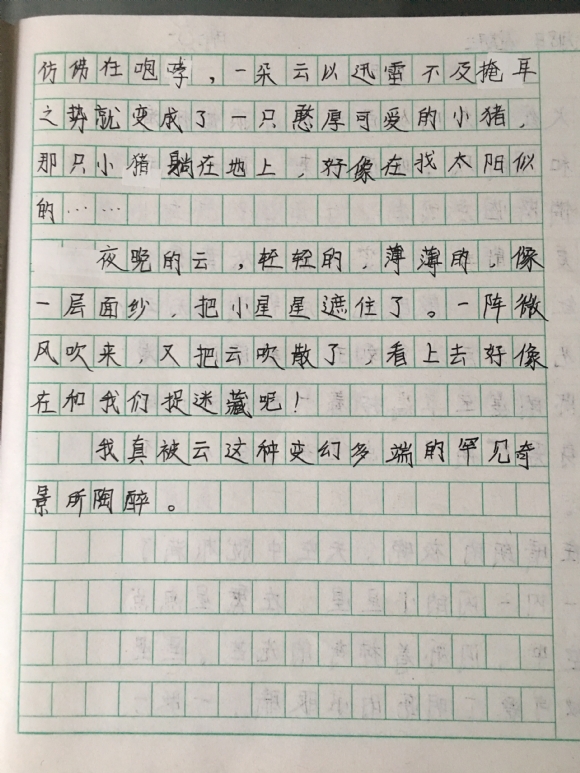 仿佛在咆哮，一朵云以迅雷不及掩耳
之势就变成了一只憨厚可爱的小猪，
那只小猪躺在地上，好像在找太阳似
的……
夜晚的云，轻轻的，薄薄的，像
一层面纱，把小星星遮住了。一阵微
风吹来，又把云吹散了，看上去好像
在和我们捉迷藏呢！
我真被云这种变幻多端的罕见奇
景所陶醉。